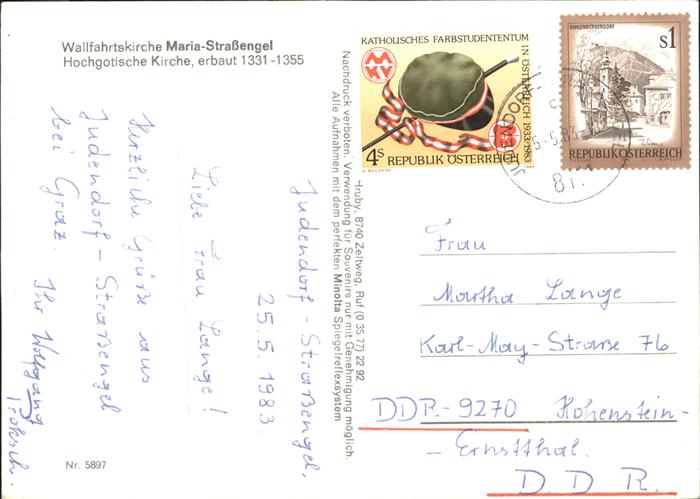 Wallfahrtskirche Maria-Straßengel
Hochgotische Kirche, erbaut 1331-1355
Judendorf-Straßengel,
25.5.1983.
Liebe Frau Lange!
Herzliche Grüße aus
Judendorf-Straßengel
bei Graz.
Ihr Wolfgang
Nr. 5897
Hruby, 8740 Zeltweg, Ruf (0 35 77) 22 92
Nachdruck verboten. Verwendung für Souvenirs nur mit Genehmigung möglich.
Alle Aufnahmen mit dem perfekten Minolta Spiegelreflexsystem
KATHOLISCHES FARBSTUDENTENTUM
IN ÖSTERREICH 1933-1983
4s REPUBLIK ÖSTERREICH
KAHLENBERGERDORF
s1
REPUBLIK ÖSTERREICH
Frau
Martha Lange
Karl-May-Straße 76
DDR-9270 Hohenstein-
-Ernstthal.
D D R.